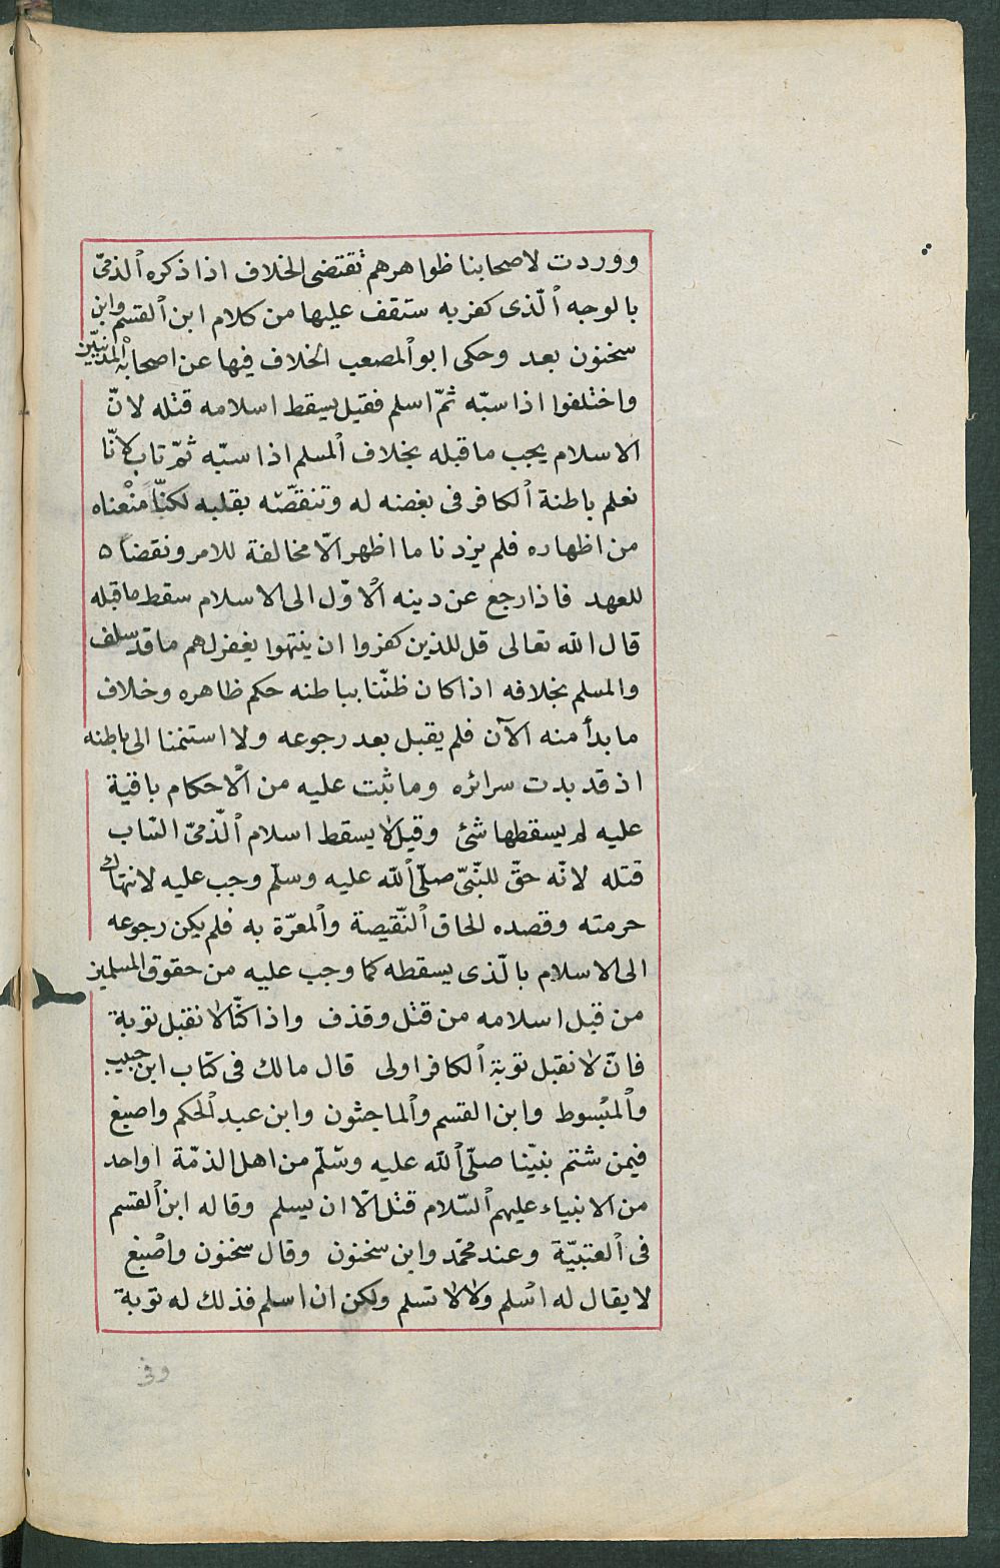 ووردت لاصحابنا ظواهرهم تقتضى الخلاف اذا ذكره الذمّى
بالوجه الّذى كفر به ستقف عليها من كلام ابن القسم وابن
سخنون بعد وحكى ابو المصعب الخلاف فيها عن اصحابه المدنيّين
واختلفوا اذا سبّه ثمّ اسلم فقيل يسقط اسلامه قتله لانّ
الاسلام يجب ما قبله بخلاف المسلم اذا سبّه ثمّ تاب لانّا
نعلم باطنة الكافر فى بغضه له وتنقّصه بقلبه لكنّا منعناه
من اظهاره فلم يزدنا ما اظهر الّا مخالفة للامر ونقضا ٥
للعهد فاذا رجع عن دينه الاوّل الى الاسلام سقط ما قبله
قال الله تعالى قل للذين كفروا ان ينتهوا يغفر لهم ما قد سلف
والمسلم بخلافه اذا كان ظنّنا بباطنه حكم ظاهره وخلاف
ما بدأ منه الآن فلم يقبل بعد رجوعه ولا استنمنا الى باطنه
اذ قد بدت سرائره وما ثبت عليه من الاحكام باقية
عليه لم يسقطها شئ وقيل لا يسقط اسلام الذّمىّ السّاب
قتله لانّه حقّ للنّبىّ صلّى الله عليه وسلّم وجب عليه لانتهاك
حرمته وقصده الحاق النّقيصة والمعرّة به فلم يكن رجوعه
الى الاسلام بالّذى يسقطه كما وجب عليه من حقوق المسلمين
من قبل اسلامه من قتل وقذف واذا كنّا لا نقبل توبة
فان لا نقبل توبة الكافر اولى قال مالك فى كتاب ابن حبيب
والمبسوط وابن القسم والماجثون وابن عبد الحكم واصبغ
فيمن شتم نبيّنا صلّى الله عليه وسلّم من اهل الذمّة او احد
من الانبياء عليهم السّلام قتل الّا ان يسلم وقاله ابن القسم
فى العتبيّة وعند محمّد وابن سخنون وقال سخنون واصبغ
لا يقال له اسلم ولا لا تسلم ولكن ان اسلم فذلك له توبة
وفى